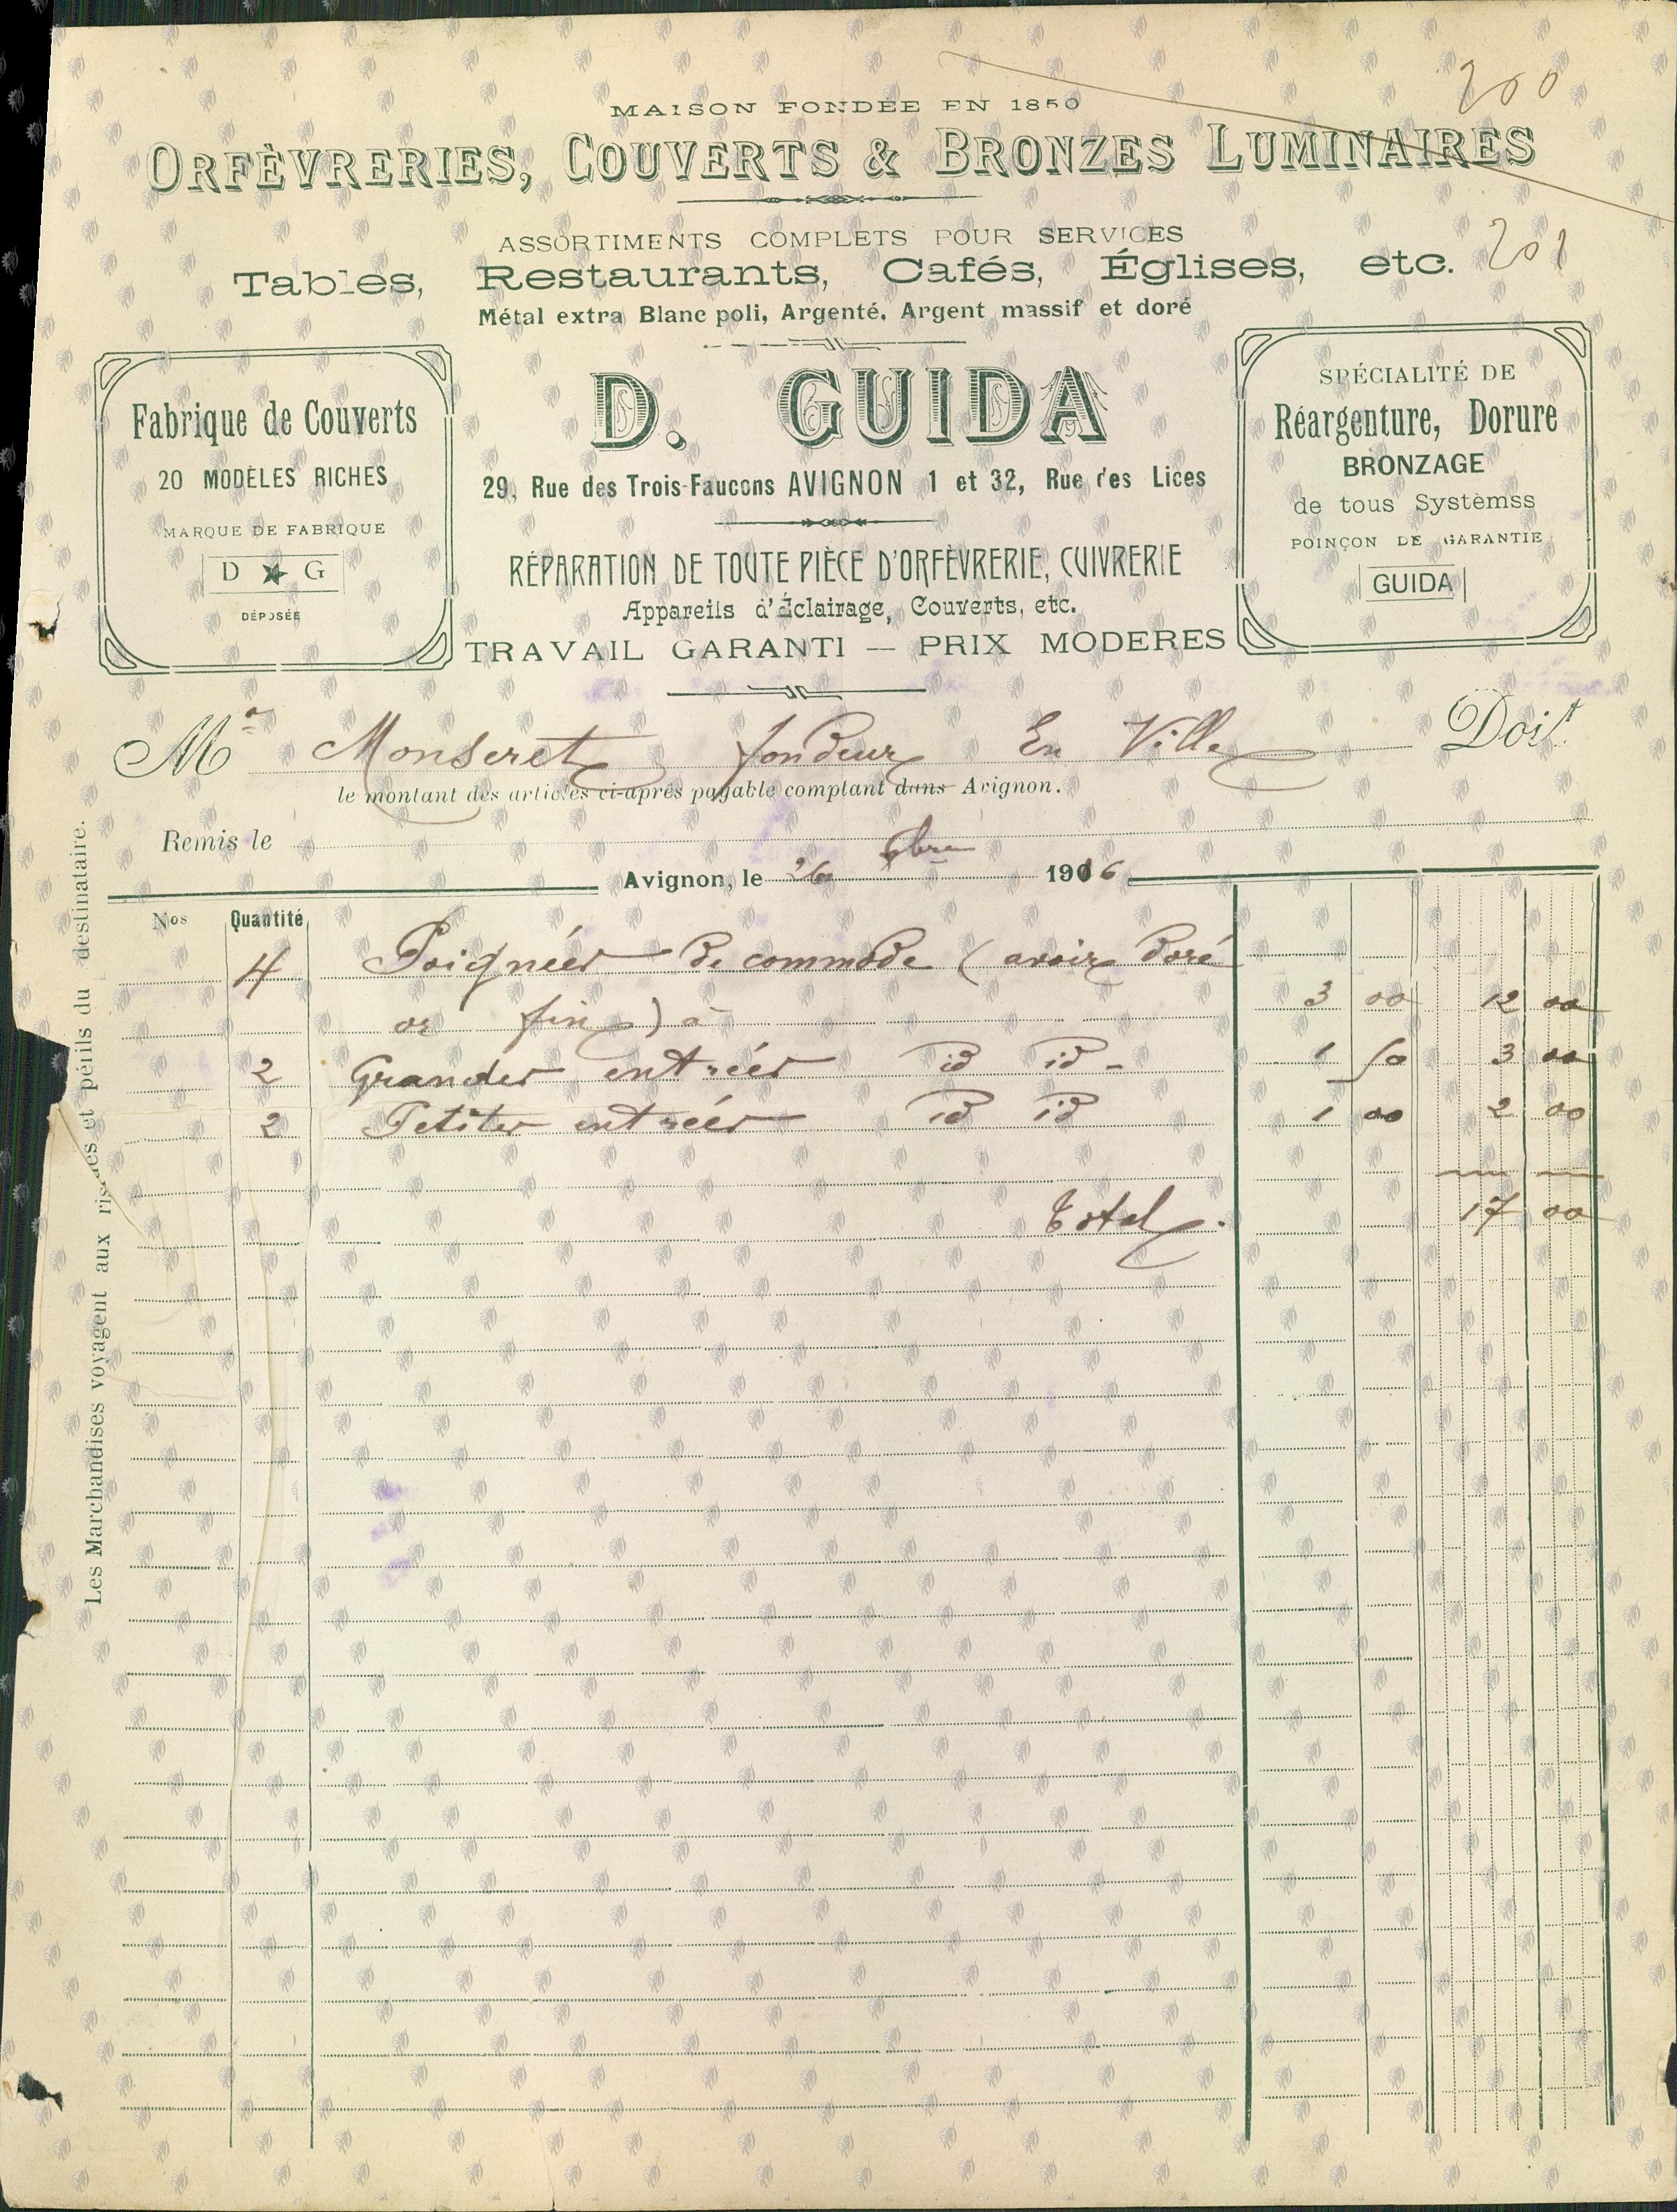 200
MAISON FONDÉE EN 1850
ORFÈVRERIES, COUVERTS & BRONZES LUMINAIRES
ASSORTIMENTS COMPLETS POUR SERVICES
Tables, Restaurants, Cafés, Églises, etc. 201
Métal extra Blanc poli, Argenté, Argent massif et doré
Fabrique de Couverts
20 MODÈLES RICHES
MARQUE DE FABRIQUE
D ★ G
DÉPOSÉE
D. GUIDA
29, Rue des Trois-Faucons AVIGNON 1 et 32, Rue des Lices
RÉPARATION DE TOUTE PIÈCE D'ORFÈVRERIE, CUIVRERIE
Appareils d'Éclairage, Couverts, etc.
TRAVAIL GARANTI — PRIX MODERES
SPÉCIALITÉ DE
Réargenture, Dorure
BRONZAGE
de tous Systèmss
POINÇON DE GARANTIE
GUIDA
Mr Monseret fondeur En Ville Doit
le montant des articles ci-après payable comptant dans Avignon.
Remis le
Avignon, le 26 bre 1906
Nos Quantité
4 Poignées de commode (avoir doré
or fin) à 3 00 12 00
2 Grandes entrées id id - 1 50 3 00
2 Petites entrées id id 1 00 2 00
Total. 17 00
Les Marchandises voyagent aux risques et périls du destinataire.